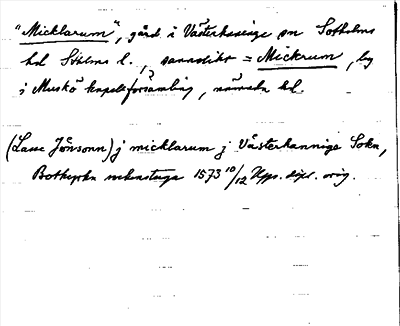 "Micklarum", gård i Västerhaninge sn Sotholms
hd Sthlms l., sannolikt = Mickrum, by
i Muskö kapellförsamling, nämnda hd.
(Lasse Jönsonn) j micklarum j Västerhannige Sokn,
Botkyrka 1573 10/12 Upps. dipl. orig.